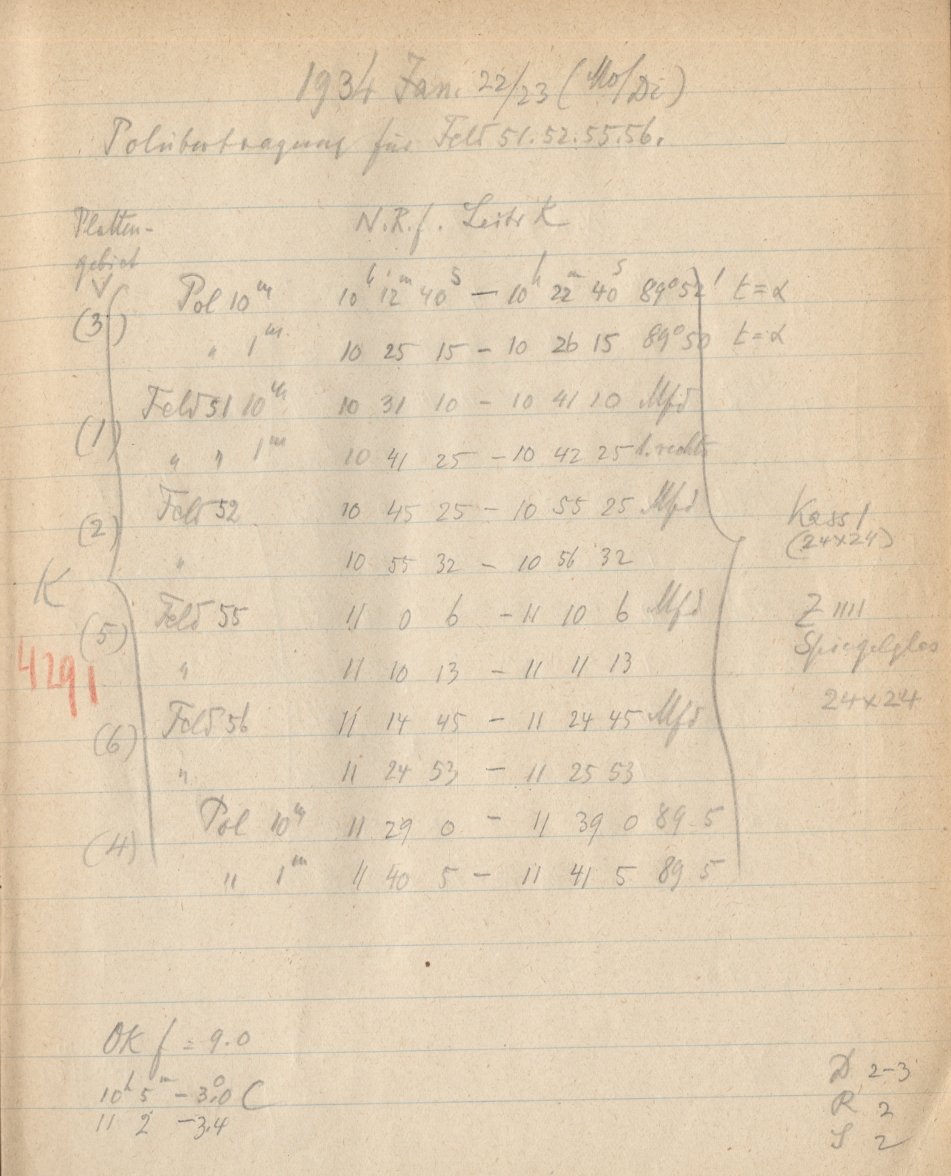 1934 Jan. 22/23 (Mo/Di)
Polübertragung für Feld 51.52.55.56.
Platten-
gebiet
N.R.f. Leitr K
(3) Pol 10m 10h 12m 40s — 10h 22m 40s 89°52' t=α
" 1m. 10 25 15 - 10 26 15 89°50 t=α
(1) Feld 51 10m 10 31 10 - 10 41 10 Mfd
" " 1m 10 41 25 - 10 42 25 d. rechts
(2) Feld 52 10 45 25 - 10 55 25 Mfd
" 10 55 32 - 10 56 32
(5) Feld 55 11 0 6 - 11 10 6 Mfd
" 11 10 13 - 11 11 13
(6) Feld 56 11 14 45 - 11 24 45 Mfd
" 11 24 53 - 11 25 53
(4) Pol 10m 11 29 0 - 11 39 0 89.5
" 1m 11 40 5 - 11 41 5 89 5
K
4291
Kass 1
(24x24)
Z IIII
Spiegelglas
24x24
OK f = 9.0
10h 5m -3.0° C
11 2 -3.4
D 2-3
R 2
S 2